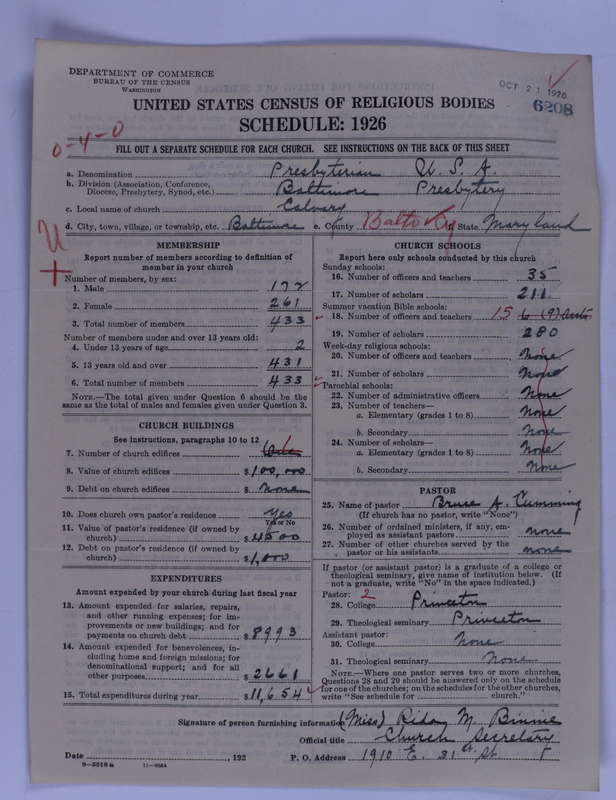 DEPARTMENT OF COMMERCE
BUREAU OF THE CENSUS
WASHINGTON
OCT 21 1926
6208
UNITED STATES CENSUS OF RELIGIOUS BODIES
SCHEDULE: 1926
0-4-0
FILL OUT A SEPARATE SCHEDULE FOR EACH CHURCH. SEE INSTRUCTIONS ON THE BACK OF THIS SHEET
a. Denomination Presbyterian U. S. A.
b. Division (Association, Conference, Diocese, Presbytery, Synod, etc.) Baltimore Presbytery
c. Local name of church Calvary
d. City, town, village, or township, etc. Baltimore e. County Balto State Maryland
MEMBERSHIP
Report number of members according to definition of
member in your church
Number of members, by sex:
1. Male 172
2. Female 261
3. Total number of members 433
Number of members under and over 13 years old:
4. Under 13 years of age 2
5. 13 years old and over 431
6. Total number of members 433
NOTE.—The total given under Question 6 should be
same as the total of males and females given under Question 3.
CHURCH BUILDINGS
See instructions, paragraphs 10 to 12
7. Number of church edifices
8. Value of church edifices $100,000
9. Debt on church edifices $ None
10. Does church own pastor's residence Yes
Yes or No
11. Value of pastor's residence (if owned by
church) $4500
12. Debt on pastor's residence (if owned by
church) $1,000
EXPENDITURES
Amount expended by your church during last fiscal year
13. Amount expended for salaries, repairs,
and other running expenses; for im-
provements or new buildings; and for
payments on church debt $8993
14. Amount expended for benevolences, in-
cluding home and foreign missions; for
denominational support; and for all
other purposes $2661
15. Total expenditures during year $11,654
CHURCH SCHOOLS
Report here only schools conducted by this church
Sunday schools:
16. Number of officers and teachers 35
17. Number of scholars 211
Summer vacation Bible schools:
18. Number of officers and teachers 15 6 (9)
19. Number of scholars 280
Week-day religious schools:
20. Number of officers and teachers None
21. Number of scholars None
Parochial schools:
22. Number of administrative officers None
23. Number of teachers—
a. Elementary (grades 1 to 8) None
b. Secondary None
24. Number of scholars—
a. Elementary (grades 1 to 8) None
b. Secondary None
PASTOR
25. Name of pastor Bruce A. Cumming
(If church has no pastor, write "None")
26. Number of ordained ministers, if any, em-
ployed as assistant pastors none
27. Number of other churches served by the
pastor or his assistants none
If pastor (or assistant pastor) is a graduate of a college or
theological seminary, give name of institution below. (If
not a graduate, write "No" in the space indicated.)
Pastor: 2
28. College Princeton
29. Theological seminary Princeton
Assistant pastor:
30. College None
31. Theological seminary none
NOTE.—Where one pastor serves two or more churches,
Questions 28 and 29 should be answered only on the schedule
for one of the churches; on the schedules for the other churches,
write "See schedule for church."
Signature of person furnishing information (Miss) M. Binnie
Official title Church Secretary
Date , 192 P. O. Address 1910 E. 31st St.
8-5518a 11-9084